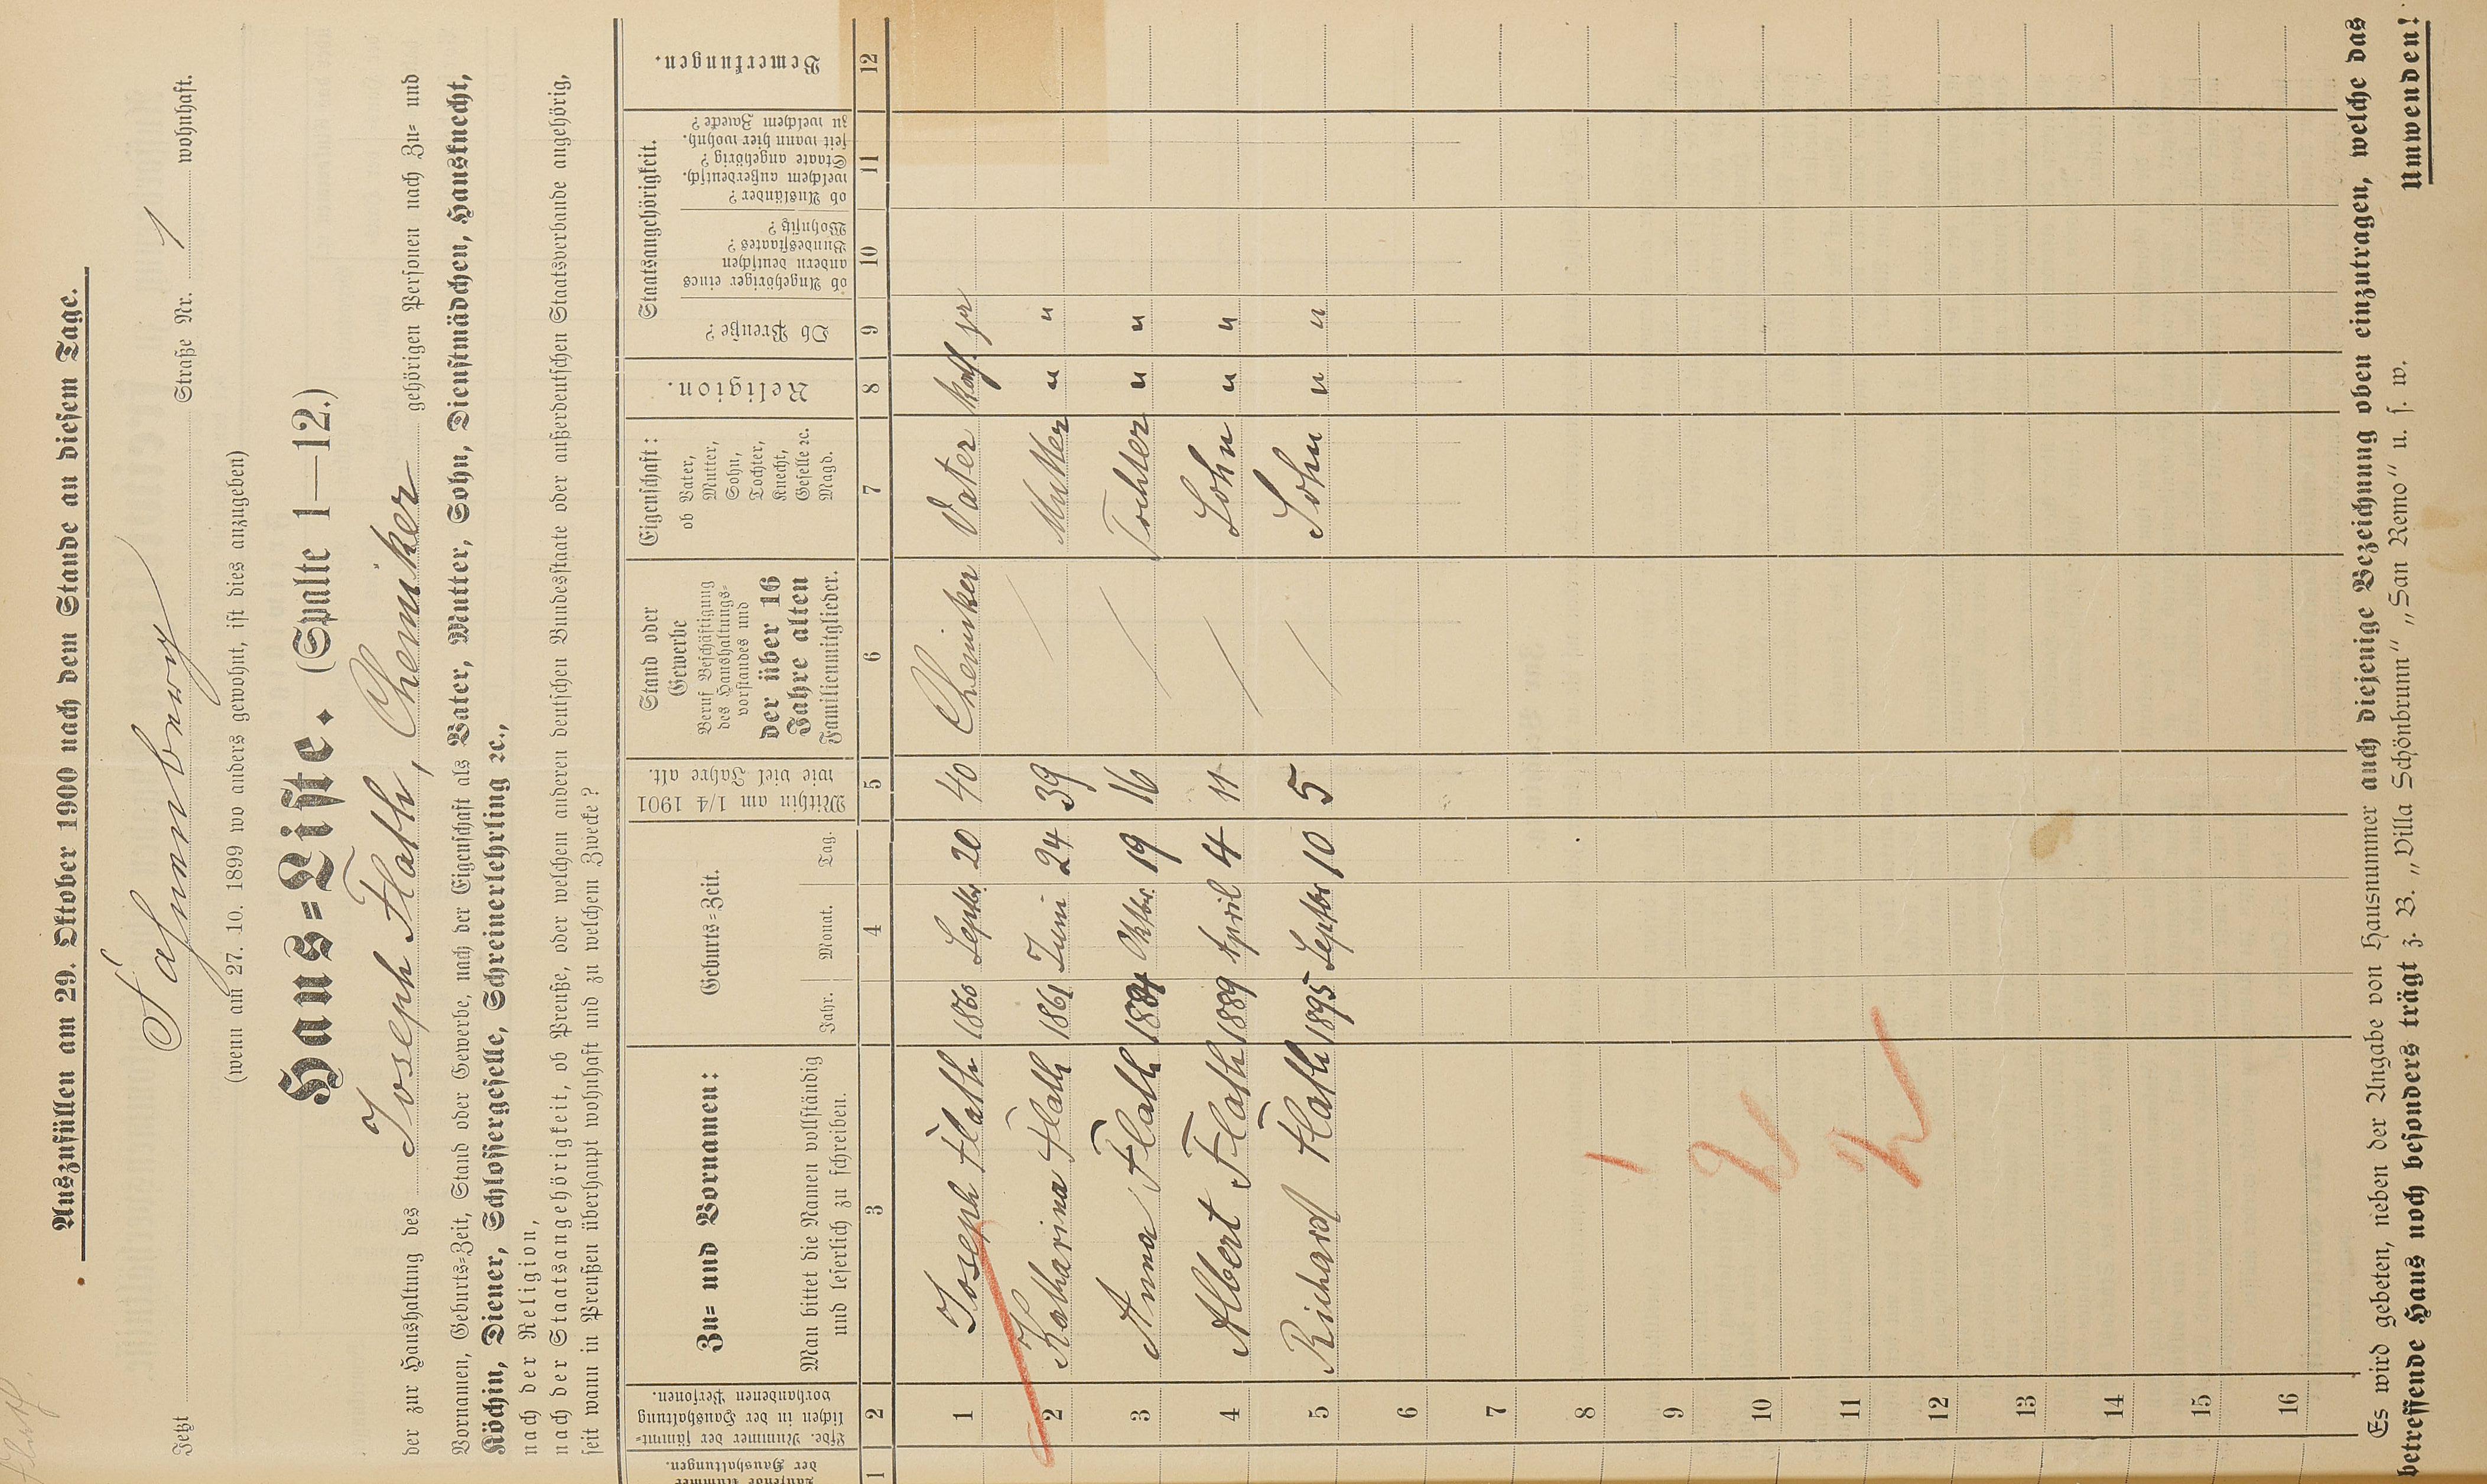 Auszufüllen am 29. Oktober 1900 nach dem Stande an diesem Tage.
Jetzt Fahnenberg Straße Nr. 1 wohnhaft.
(wenn am 27. 10. 1899 wo anders gewohnt, ist dies anzugeben)
Haus-Liste. (Spalte 1—12.)
der zur Haushaltung des Joseph Flath, Chemiker gehörigen Personen nach Zu- und
Vornamen, Geburts-Zeit, Stand oder Gewerbe, nach der Eigenschaft als Vater, Mutter, Sohn, Dienstmädchen, Hausknecht,
Köchin, Diener, Schlossergeselle, Schreinerlehrling ꝛc.,
nach der Religion,
nach der Staatsangehörigkeit, ob Preuße, oder welchem anderen deutschen Bundesstaate oder außerdeutschen Staatsverbande angehörig,
seit wann in Preußen überhaupt wohnhaft und zu welchem Zwecke?
Laufende Nummer
der Haushaltungen.
Lfde. Nummer der sämmt-
lichen in der Haushaltung
vorhandenen Personen.
Zu- und Vornamen:
Man bittet die Namen vollständig
und leserlich zu schreiben.
Geburts-Zeit.
Jahr. Monat. Tag.
Mithin am 1/4 1901
wie viel Jahre alt.
Stand oder
Gewerbe
Beruf Beschäftigung
des Haushaltungs-
vorstandes und
der über 16
Jahre alten
Familienmitglieder.
Eigenschaft:
ob Vater,
Mutter,
Sohn,
Tochter,
Knecht,
Geselle ꝛc.
Magd.
Religion.
Staatsangehörigkeit.
Ob Preuße?
ob Angehöriger eines
andern deutschen
Bundesstaates?
Wohnsitz?
ob Ausländer?
welchem außerdeutsch.
Staate angehörig?
seit wann hier wohnh.
zu welchem Zwecke?
Bemerkungen.
1 2 3 4 5 6 7 8 9 10 11 12
1 Joseph Flath 1860 Septbr. 20 40 Chemiker Vater kath. ja
2 Katharina Flath 1861 Juni 24 39 / Mutter " "
3 Anna Flath 1884 Oktbr. 19 16 / Tochter " "
4 Albert Flath 1889 April 4 11 / Sohn " "
5 Richard Flath 1895 Septbr 10 5 / Sohn " "
6
7
8
9
10
11
12
13
14
15
16
Es wird gebeten, neben der Angabe von Hausnummer auch diejenige Bezeichnung oben einzutragen, welche das
betreffende Haus noch besonders trägt z. B. „Villa Schönbrunn" „San Remo" u. s. w.
Umwenden!